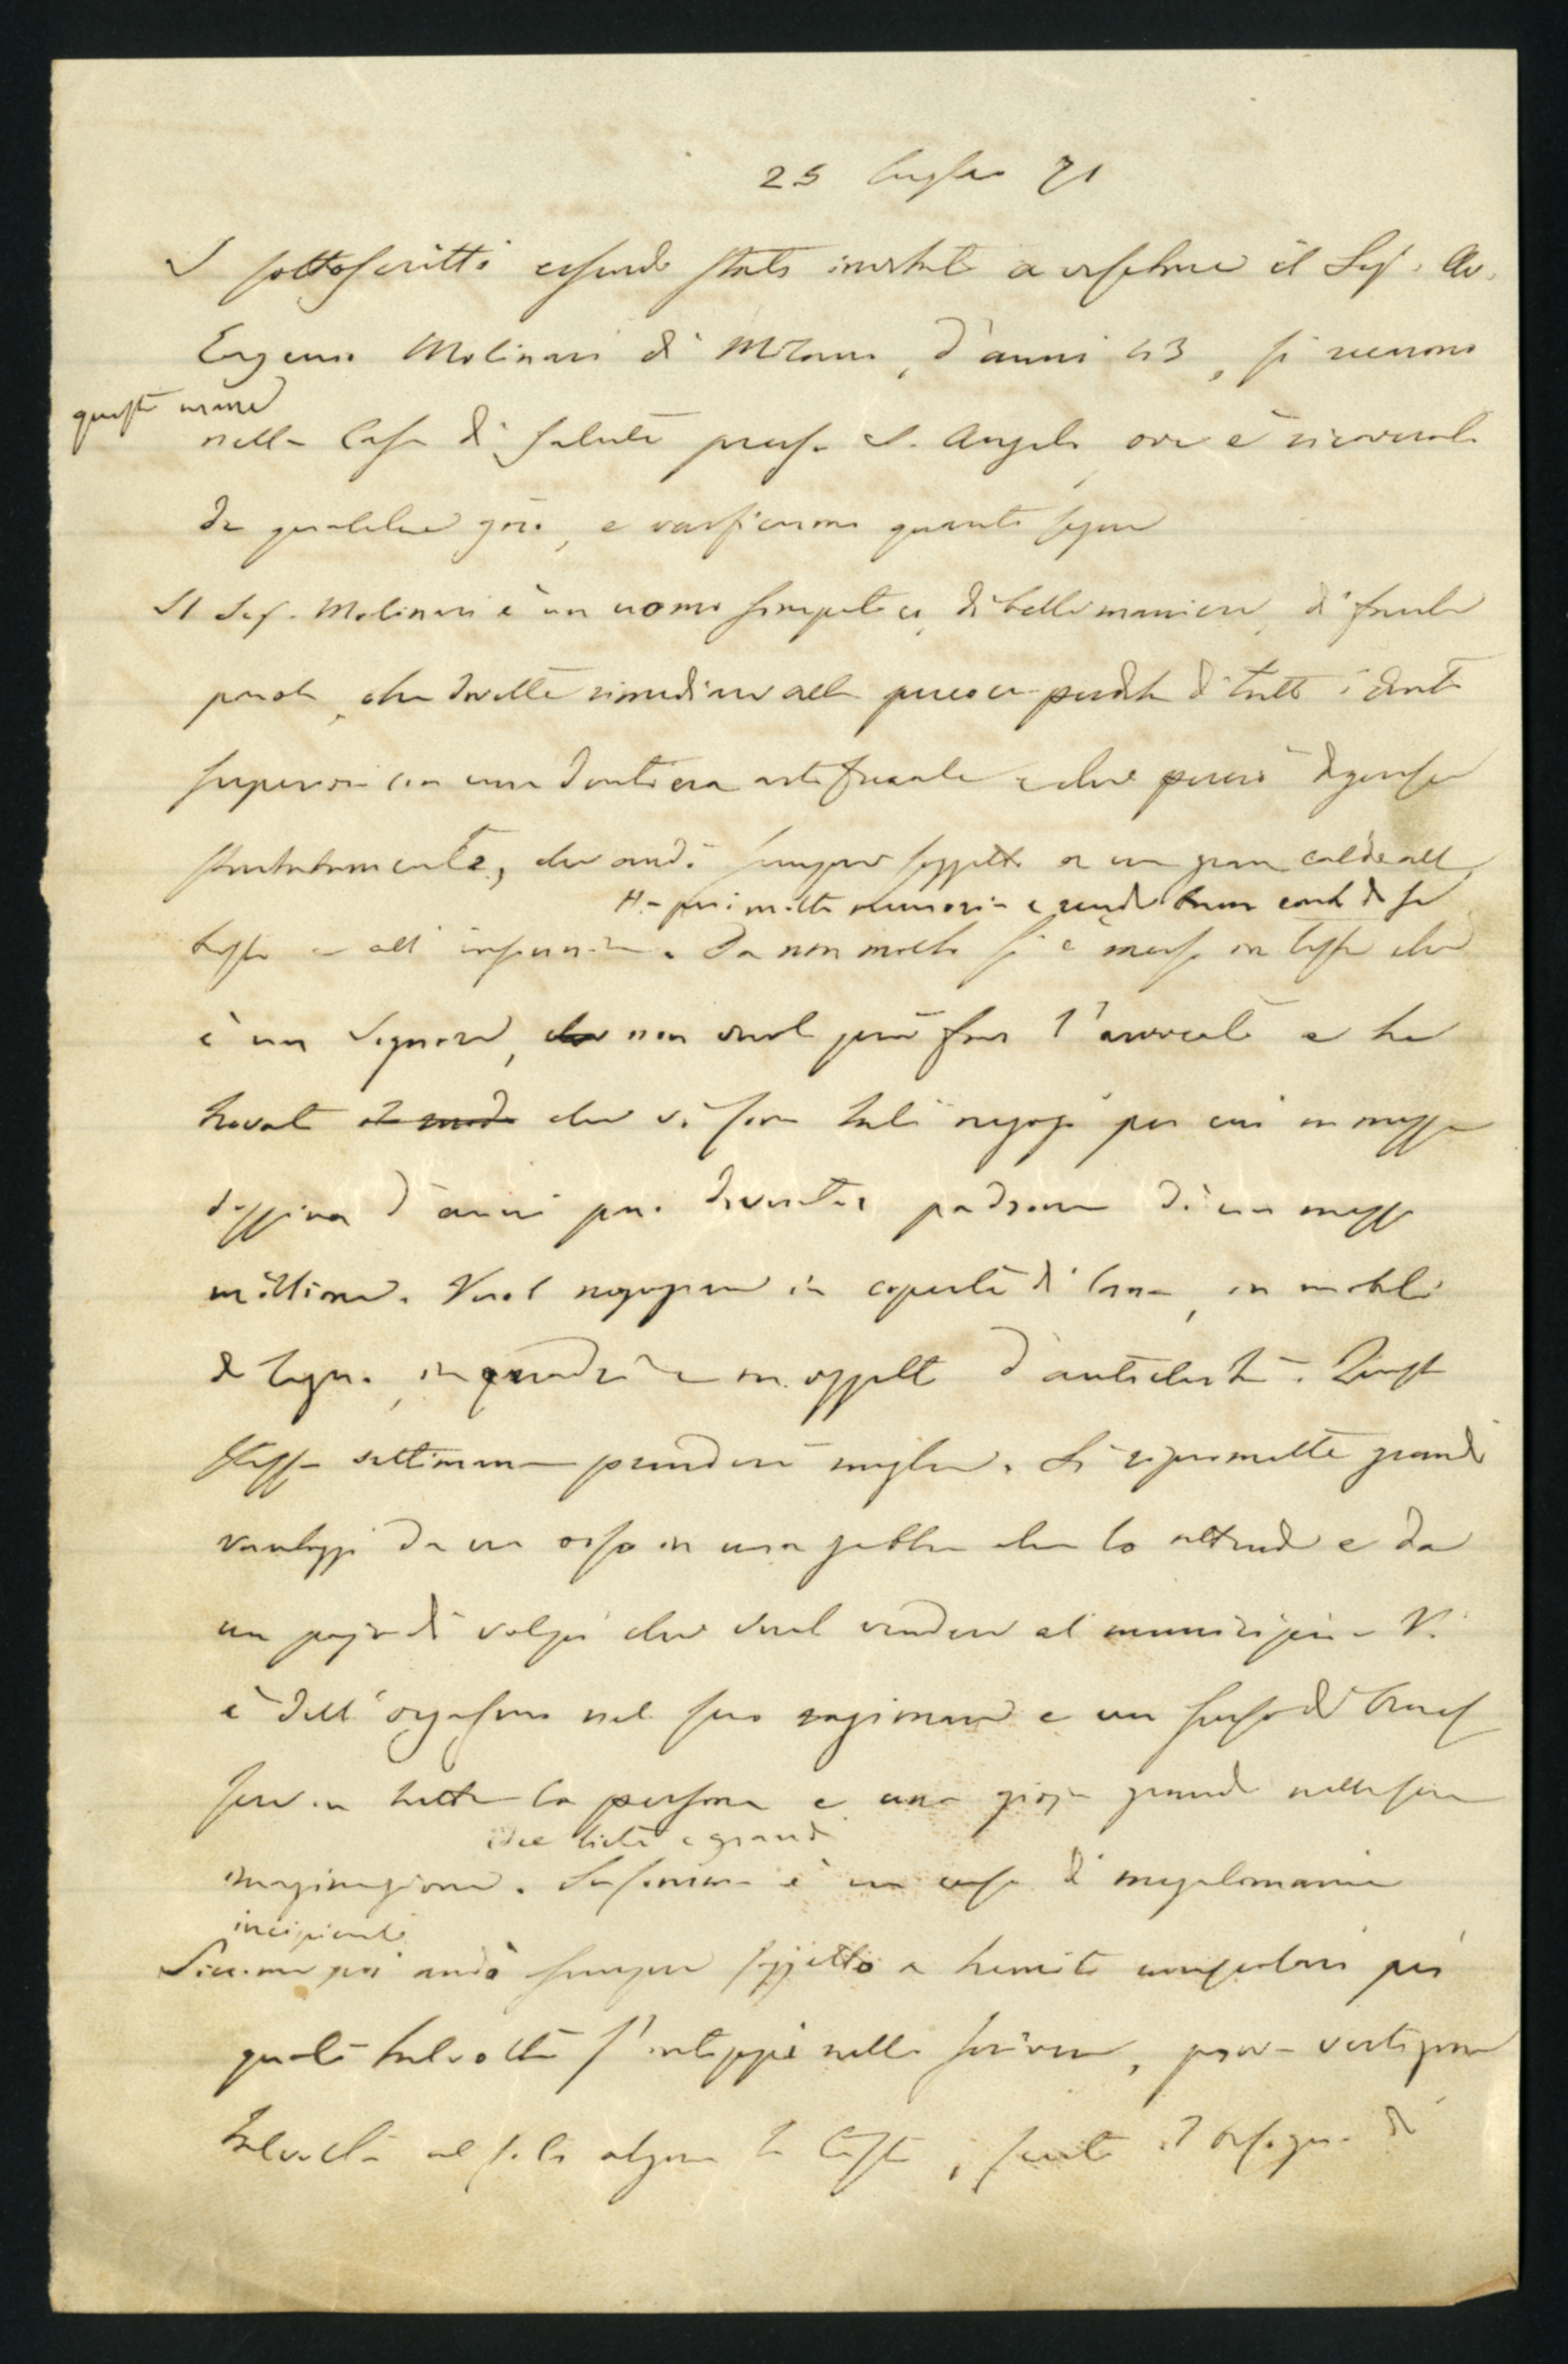 25 luglio 71
I sottoscritti essendo stati invitati a visitare il Sig. Av.
Eugenio Molinari di Milano, d'anni 43, si recarono
questa mane
nella Casa di salute presso S. Angelo ove è ricoverato
da qualche giorno, e verificarono quanto segue
Il Sig. Molinari è un uomo simpatico, di belle maniere, di facile
parola, che dovette rimediare alla precoce perdita di tutti i denti
superiori con una dentiera artificiale e che perciò digerisce
stentatamente, che andò sempre soggetto a un gran calore alla
Ha poi molta memoria e rende buon conto di se
testa e all'insonnia. Da non molto si è messo in testa che
è un Signore, che non vuol più fare l'avvocato e ha
trovato il modo che vi sono tali negozi per cui in mezza
dozzina d'anni può diventar padrone di un mezzo
milione. Vuol negoziare in coperte di lana, in mobili
di legno, in quadri e in oggetti d'antichità. Questa
stessa settimana prenderà moglie. Si ripromette grandi
vantaggi da un orso in una gabbia che lo attende e da
un pajo di volpi che vuol vendere al municipio. Vi
è dell'orgasmo nel suo ragionare e un senso di benes
sere in tutta la persona e una gioja grande nella sua
idee liete e grandi
imaginazione. Insomma è un caso di megalomania
incipiente
Siccome poi andò sempre soggetto a tremiti muscolari pei
quali talvolta s'intoppa nello scrivere, prova vertigine
talvolta al solo alzare la testa, sente il bisogno di